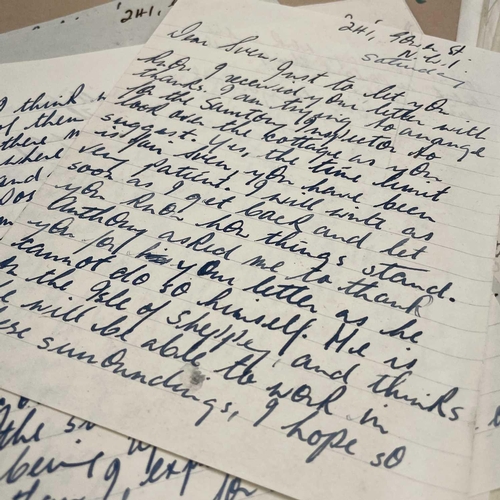 "2H1,
"2H1, St.
N.W.1.
Saturday
Dear Sven, Just to let you
know I received your letter with
thanks. I am trying to arrange
for the Sanitary Inspector to
look over the cottage as you
suggest. Yes, the time limit
is fair even you have been
very patient. I will write as
soon as I get back and let
you know how things stand.
Anthony asked me to thank
you for your letter as he
cannot do so himself. He is
on the Isle of Sheppey, and thinks
he will be able to work in
these surroundings, I hope so
I think
of them
there
where
and
the
being I exp
for